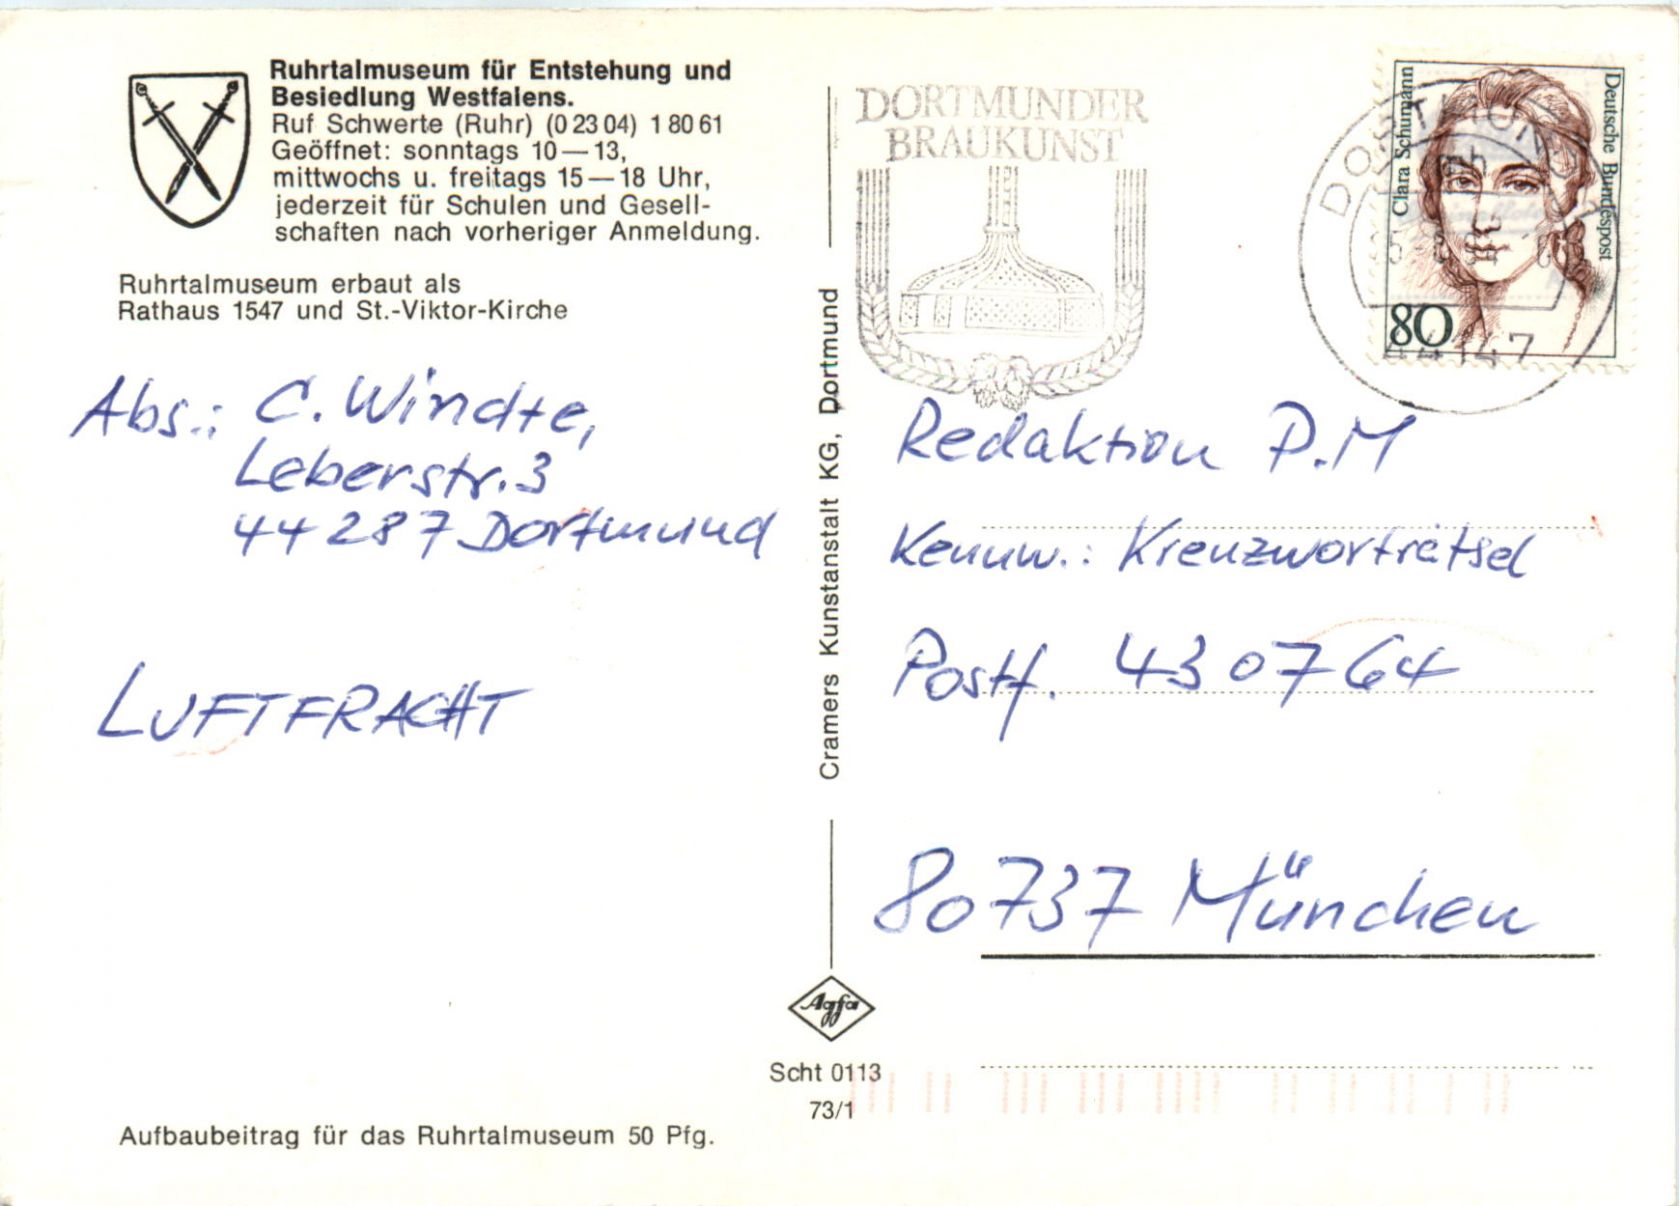 Ruhrtalmuseum für Entstehung und
Besiedlung Westfalens.
Ruf Schwerte (Ruhr) (0 23 04) 1 80 61
Geöffnet: sonntags 10—13,
mittwochs u. freitags 15—18 Uhr,
jederzeit für Schulen und Gesell-
schaften nach vorheriger Anmeldung.
Ruhrtalmuseum erbaut als
Rathaus 1547 und St.-Viktor-Kirche
Abs.: C. Windte,
Leberstr. 3
44287 Dortmund
LUFTFRACHT
Aufbaubeitrag für das Ruhrtalmuseum 50 Pfg.
Cramers Kunstanstalt KG, Dortmund
Agfa
Scht 0113
73/1
DORTMUNDER
BRAUKUNST
DORTMUND
44147
Clara Schumann
Deutsche Bundespost
80
Redaktion P.M
Kennw.: Kreuzworträtsel
Postf. 430764
80737 München